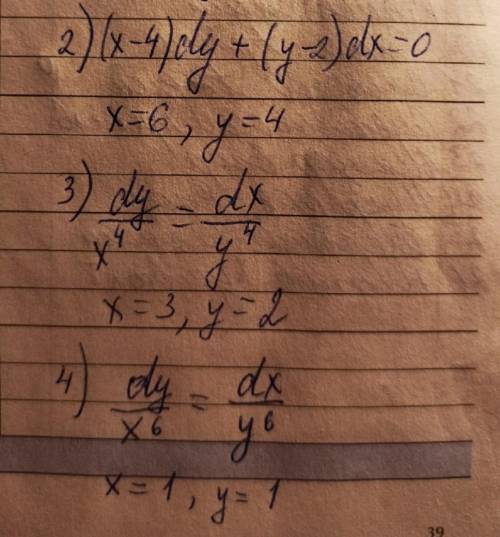 2) (x-4)dy + (y-2)dx=0
x=6, y=4
3) dy/x^4 = dx/y^4
x=3, y=2
4) dy/x^6 = dx/y^6
x=1, y=1
39